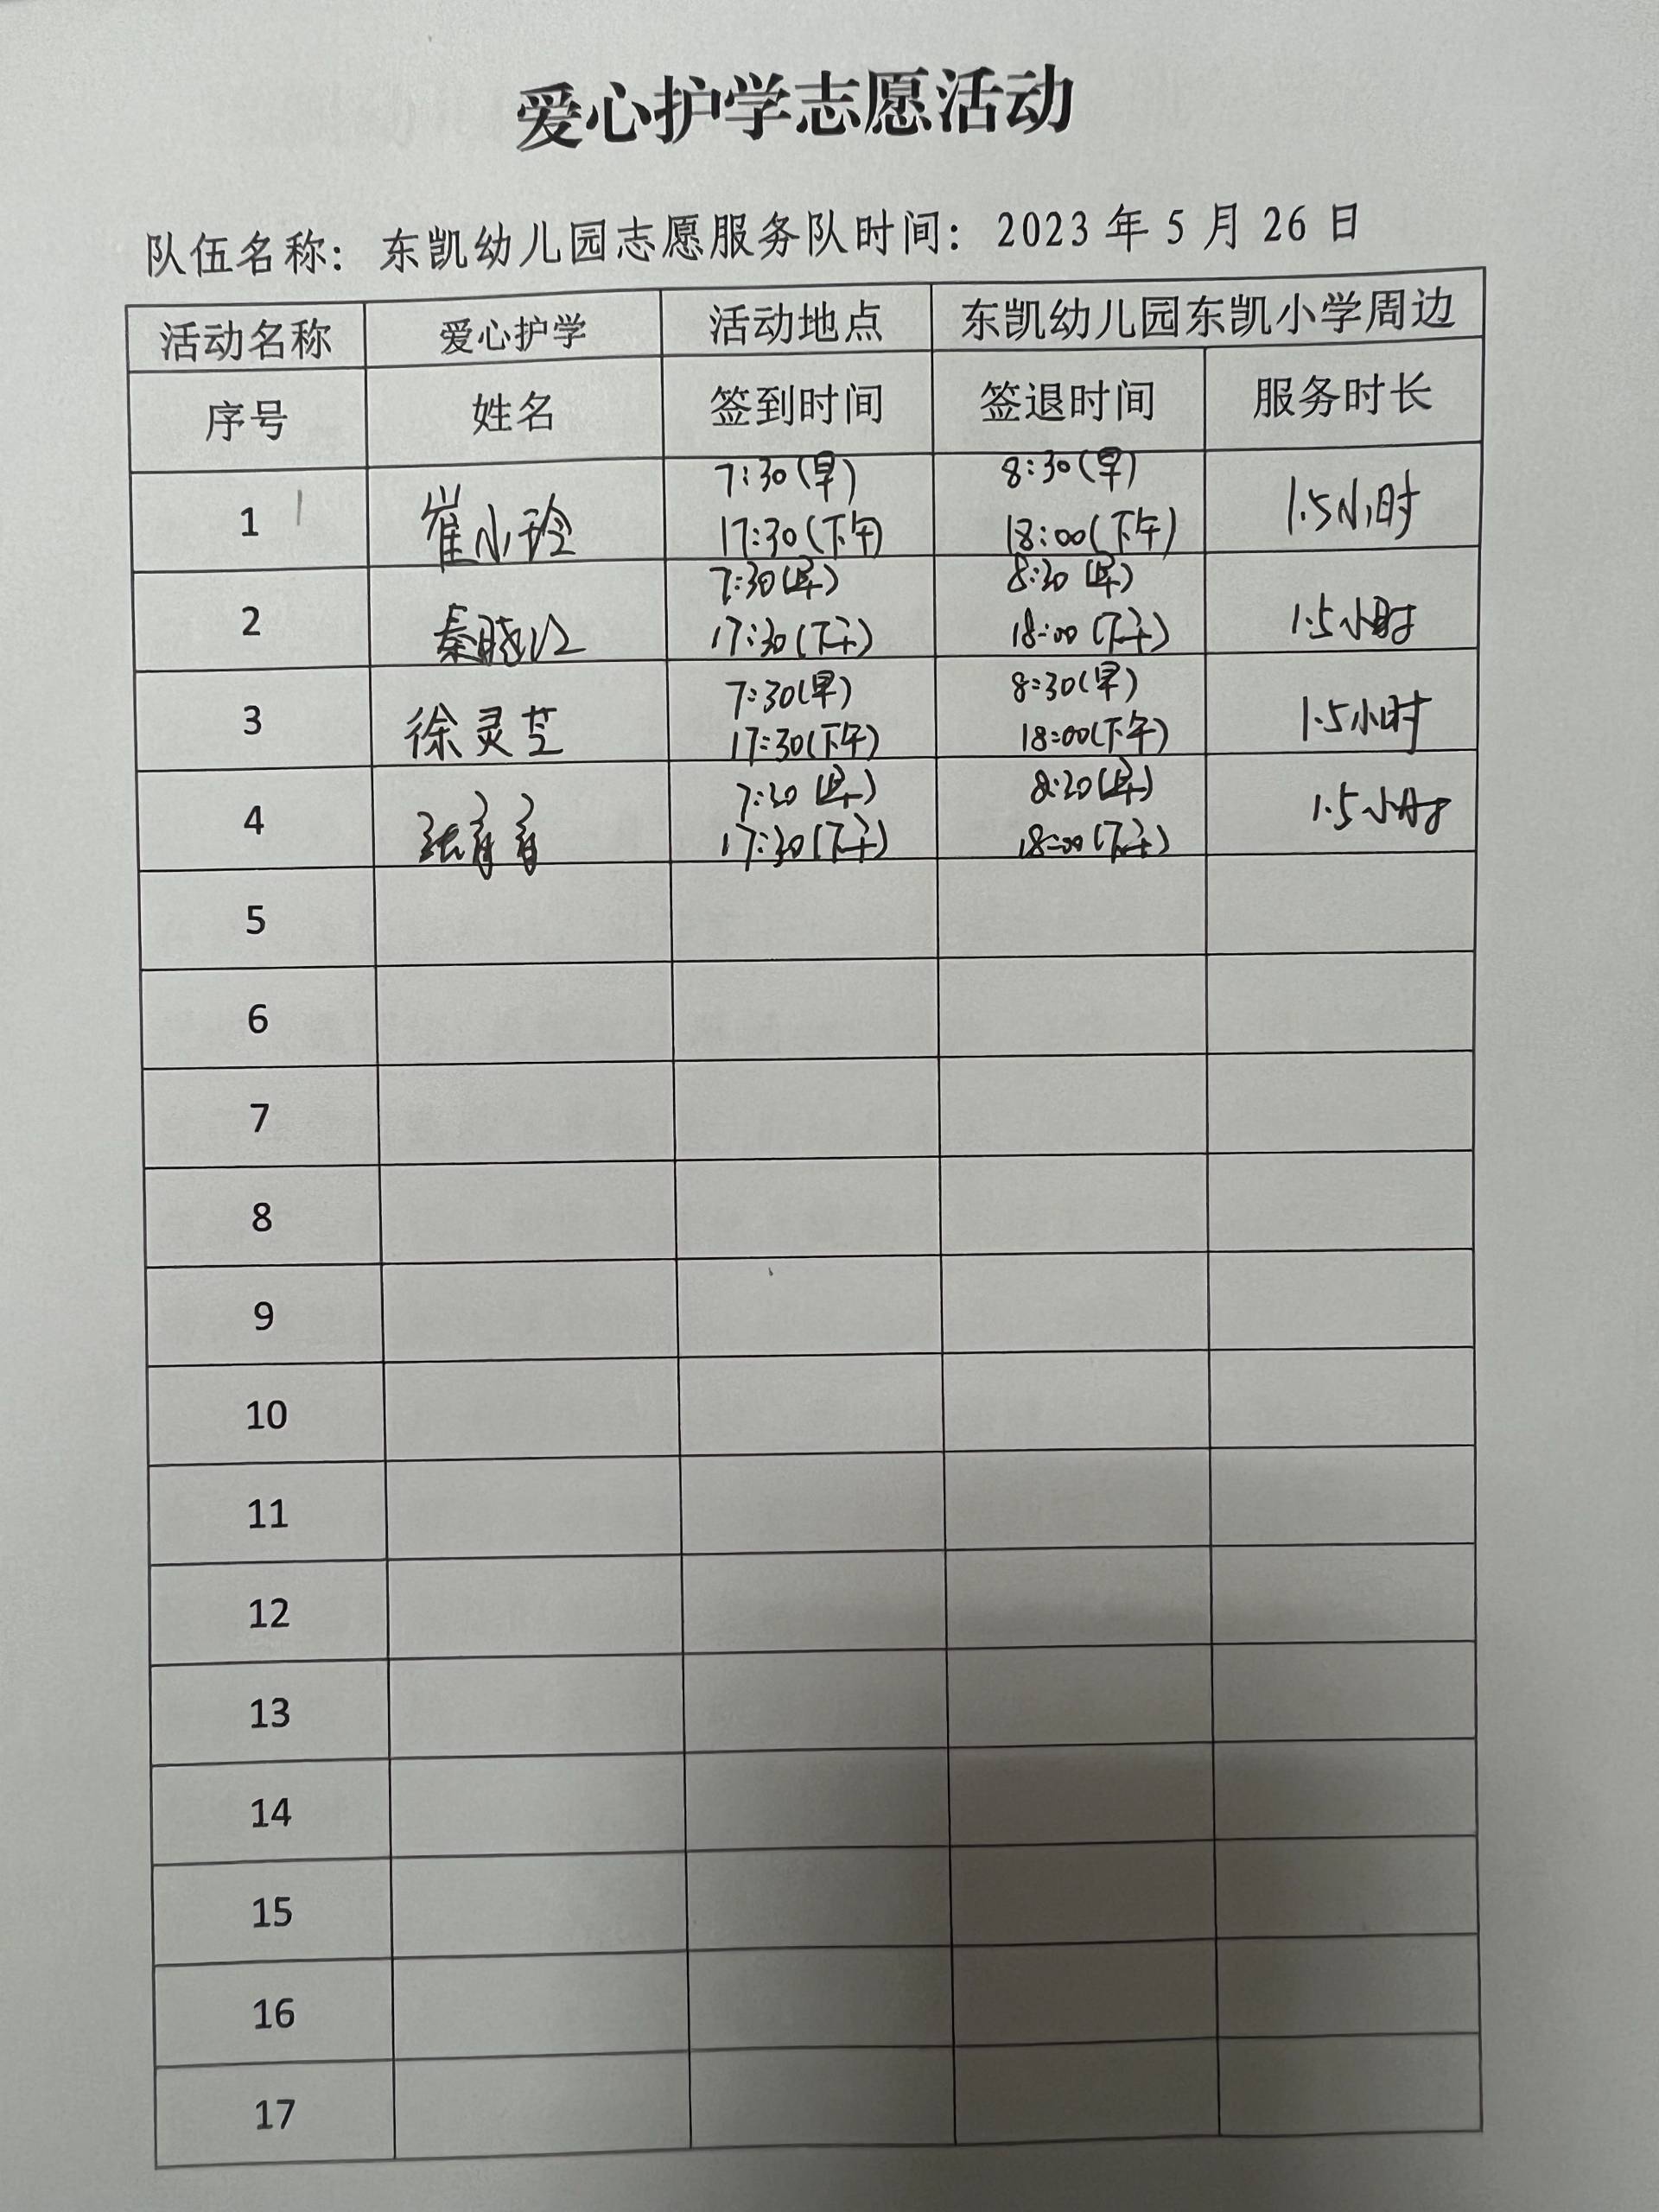 爱心护学志愿活动
队伍名称：东凯幼儿园志愿服务队时间：2023年5月26日
活动名称 爱心护学 活动地点 东凯幼儿园东凯小学周边
序号 姓名 签到时间 签退时间 服务时长
1 崔小玲 7:30(早) 8:30(早) 1.5小时
17:30(下午) 18:00(下午)
2 秦晓 7:30(早) 8:30(早) 1.5小时
17:30(下午) 18:00(下午)
3 徐灵芝 7:30(早) 8:30(早) 1.5小时
17:30(下午) 18:00(下午)
4 张 7:30(早) 8:30(早) 1.5小时
17:30(下午) 18:00(下午)
5
6
7
8
9
10
11
12
13
14
15
16
17